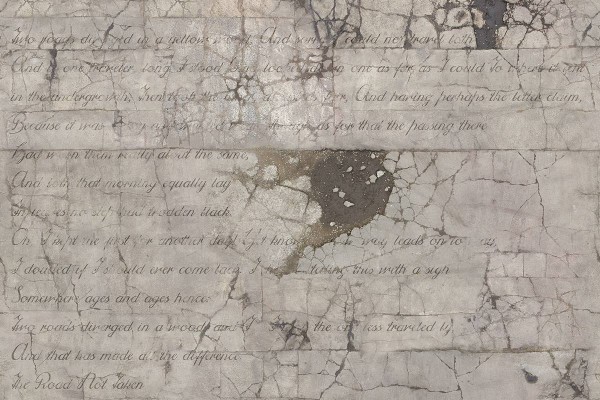 Two roads diverged in a yellow wood, And sorry I could not travel both
And be one traveler, long I stood And looked down one as far as I could To where it bent
in the undergrowth; Then took the other, as just as fair, And having perhaps the better claim,
Because it was grassy and wanted wear; Though as for that the passing there
Had worn them really about the same,
And both that morning equally lay
In leaves no step had trodden black.
Oh, I kept the first for another day! Yet knowing how way leads on to way,
I doubted if I should ever come back. I shall be telling this with a sigh
Somewhere ages and ages hence:
Two roads diverged in a wood, and I I took the one less traveled by,
And that has made all the difference.
The Road Not Taken